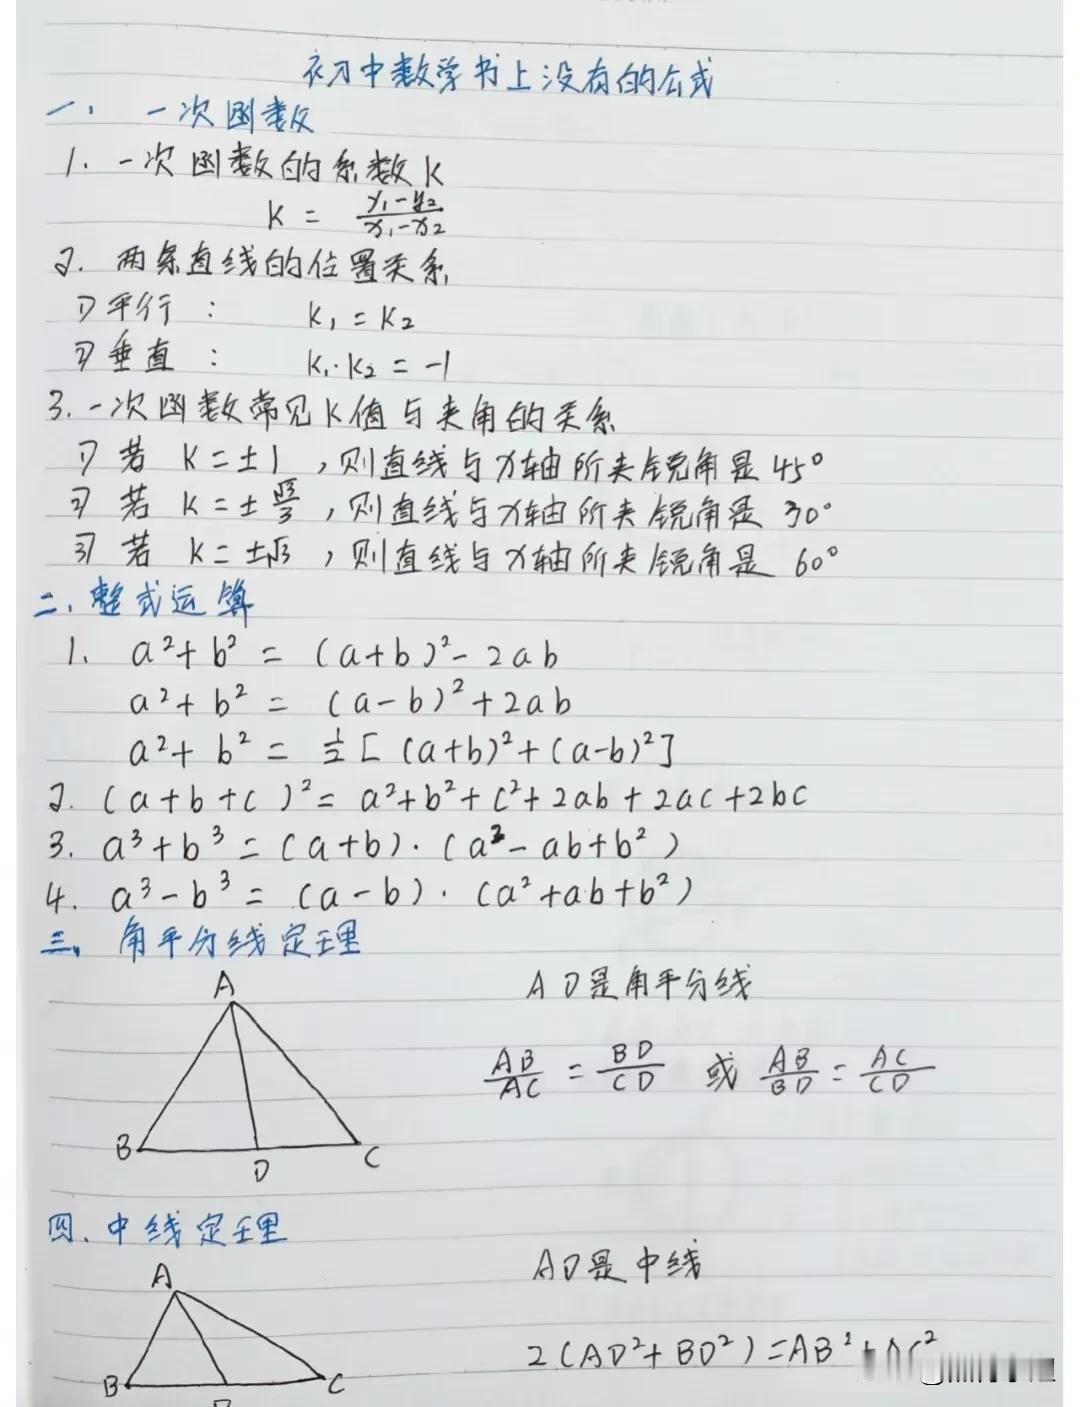 初中数学书上没有的公式
一、一次函数
1. 一次函数的系数K
K = \frac{y₁-y₂}{x₁-x₂}
2. 两条直线的位置关系
1) 平行: K₁ = K₂
2) 垂直: K₁·K₂ = -1
3. 一次函数常见K值与夹角的关系
1) 若 K = ±1 ,则直线与x轴所夹锐角是 45°
2) 若 K = ±\frac{√3}{3} ,则直线与x轴所夹锐角是 30°
3) 若 K = ±√3 ,则直线与x轴所夹锐角是 60°
二、整式运算
1. a²+b² = (a+b)²-2ab
a²+b² = (a-b)²+2ab
a²+b² = \frac{1}{2}[(a+b)²+(a-b)²]
2. (a+b+c)² = a²+b²+c²+2ab+2ac+2bc
3. a³+b³ = (a+b)·(a²-ab+b²)
4. a³-b³ = (a-b)·(a²+ab+b²)
三、角平分线定理
A
AD是角平分线
\frac{AB}{AC} = \frac{BD}{CD} 或 \frac{AB}{BD} = \frac{AC}{CD}
B D C
四、中线定理
A
AD是中线
2(AD²+BD²)=AB²+AC²
B C